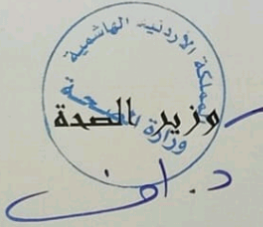 المملكة الأردنية الهاشمية
وزير الصحة
وزارة الصحة